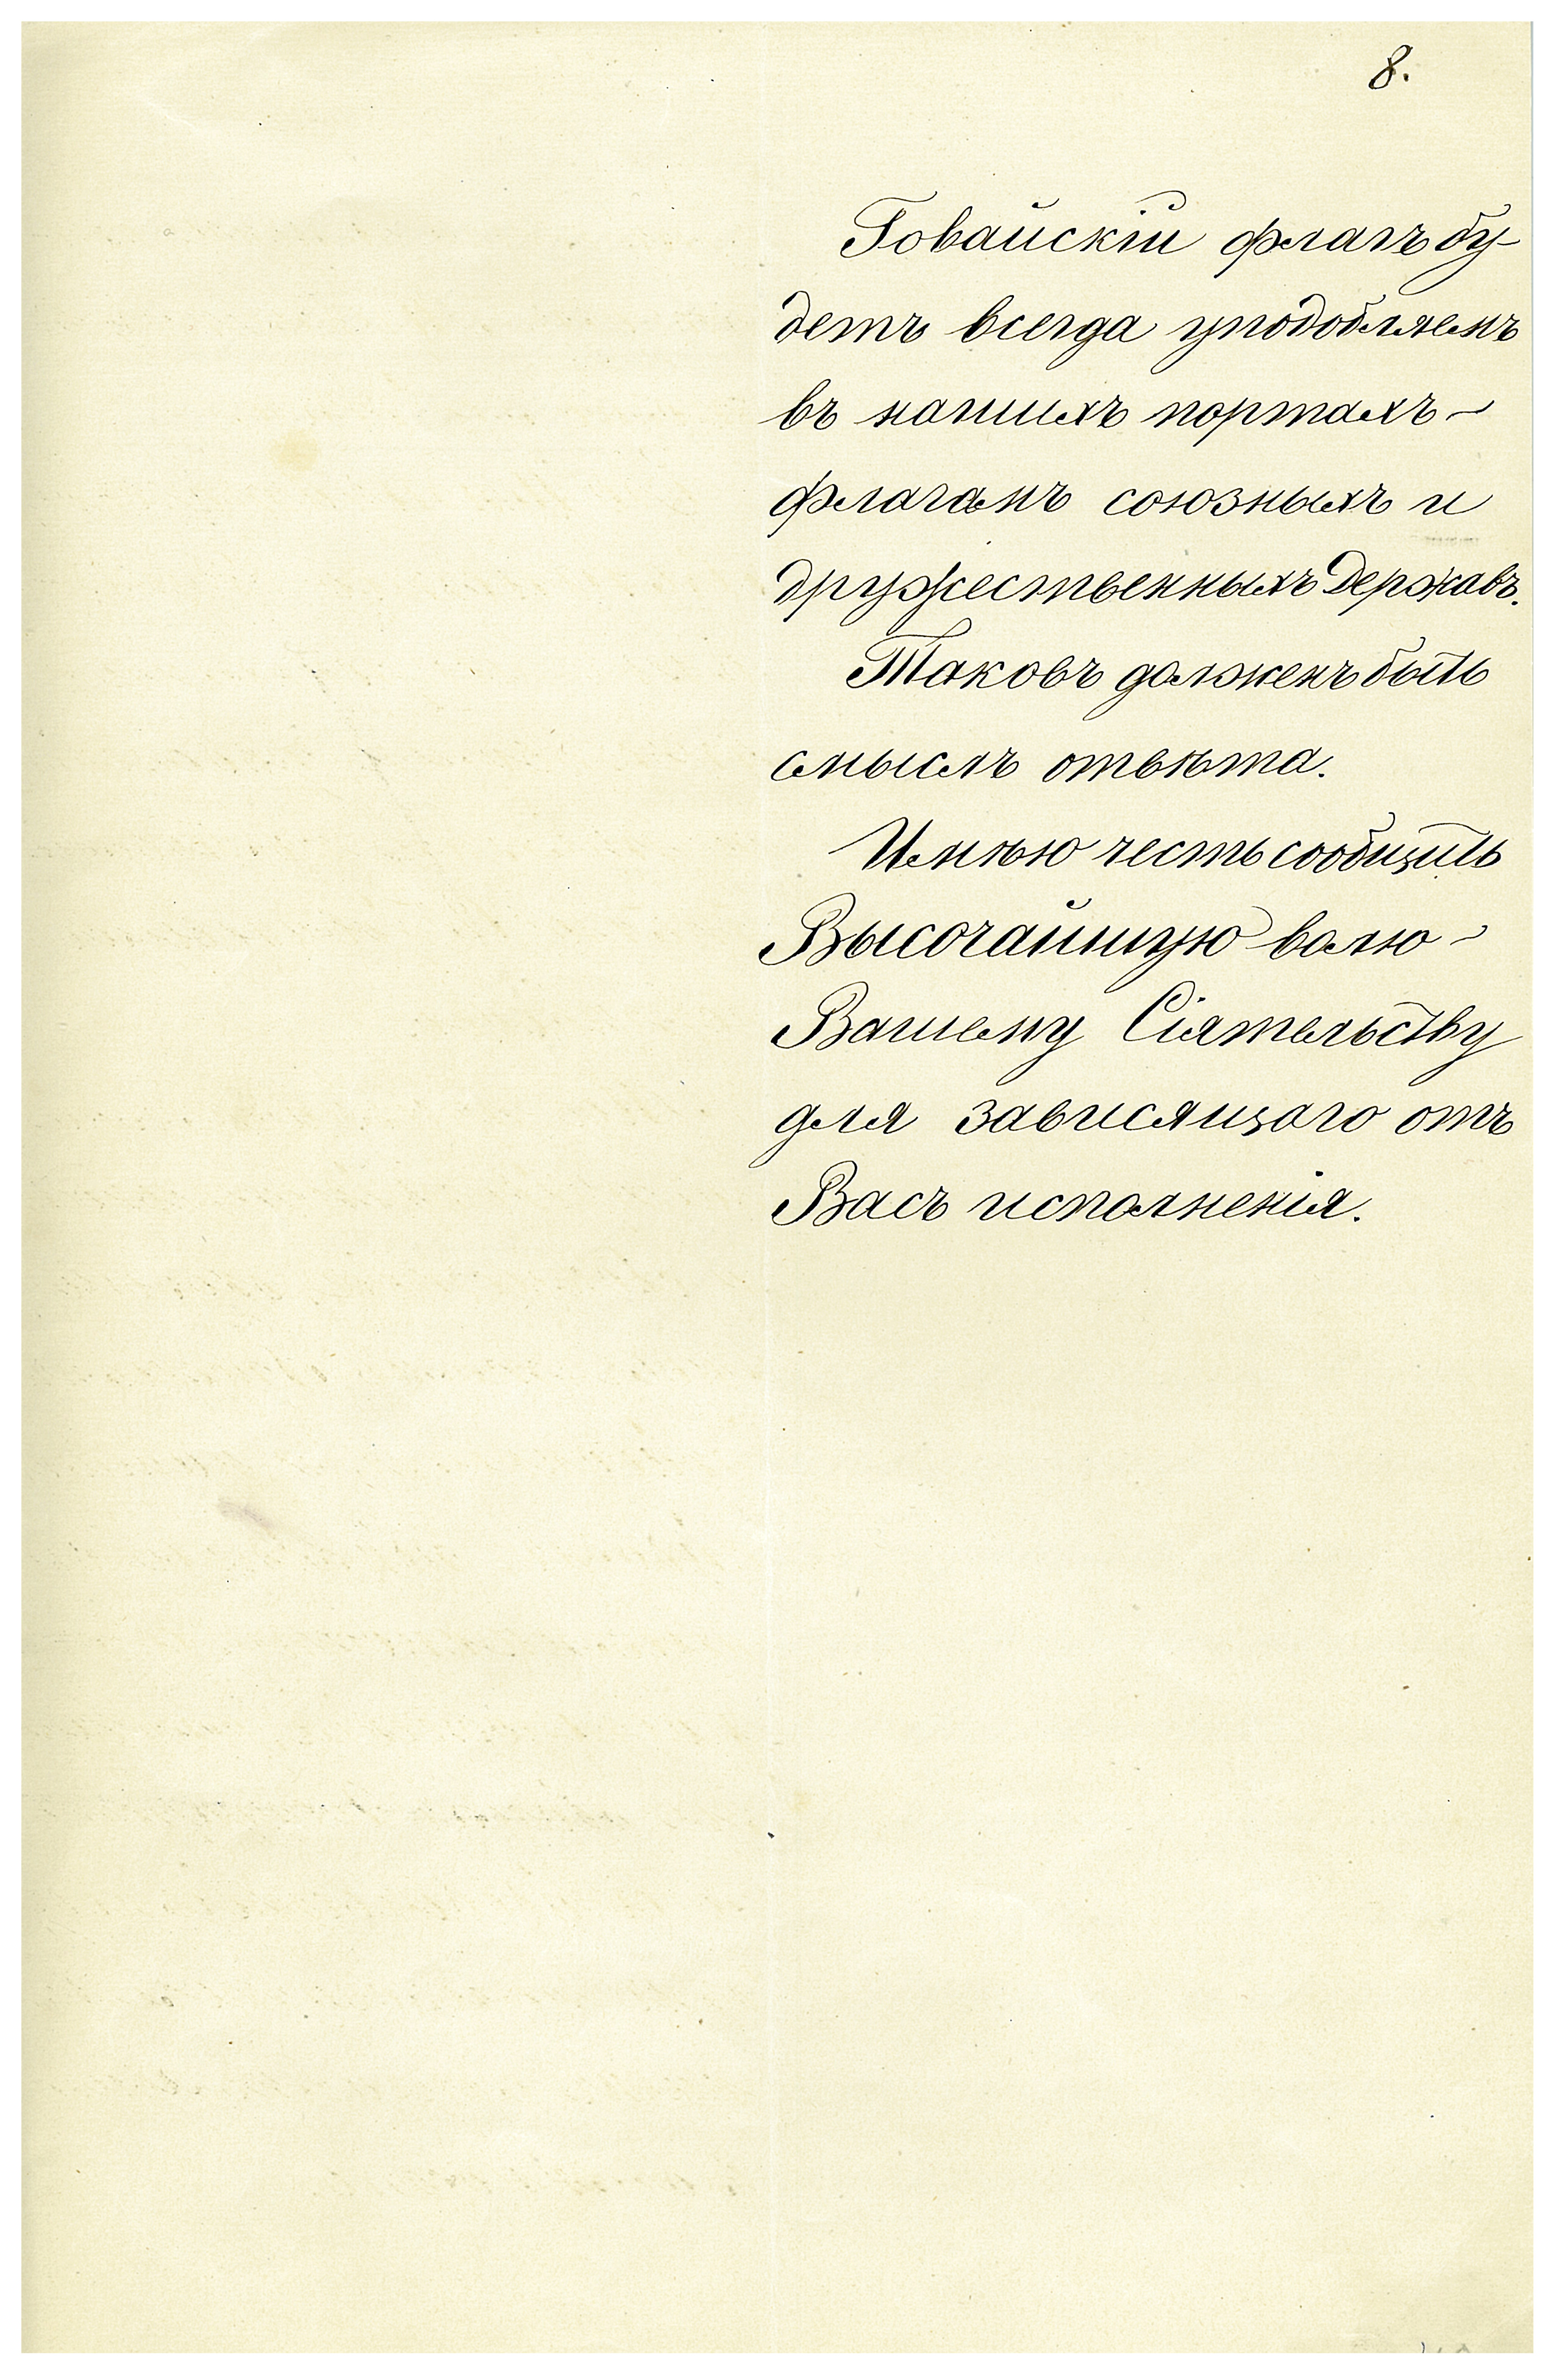 8.
Говайскій флагъ бу-
детъ всегда уподобляемъ
въ нашихъ портахъ -
флагамъ союзныхъ и
дружественныхъ Державъ.
Таковъ долженъ быть
смыслъ отвѣта.
Имѣю честь сообщить
Высочайшую волю -
Вашему Сіятельству
для зависящаго отъ
Васъ исполненія.